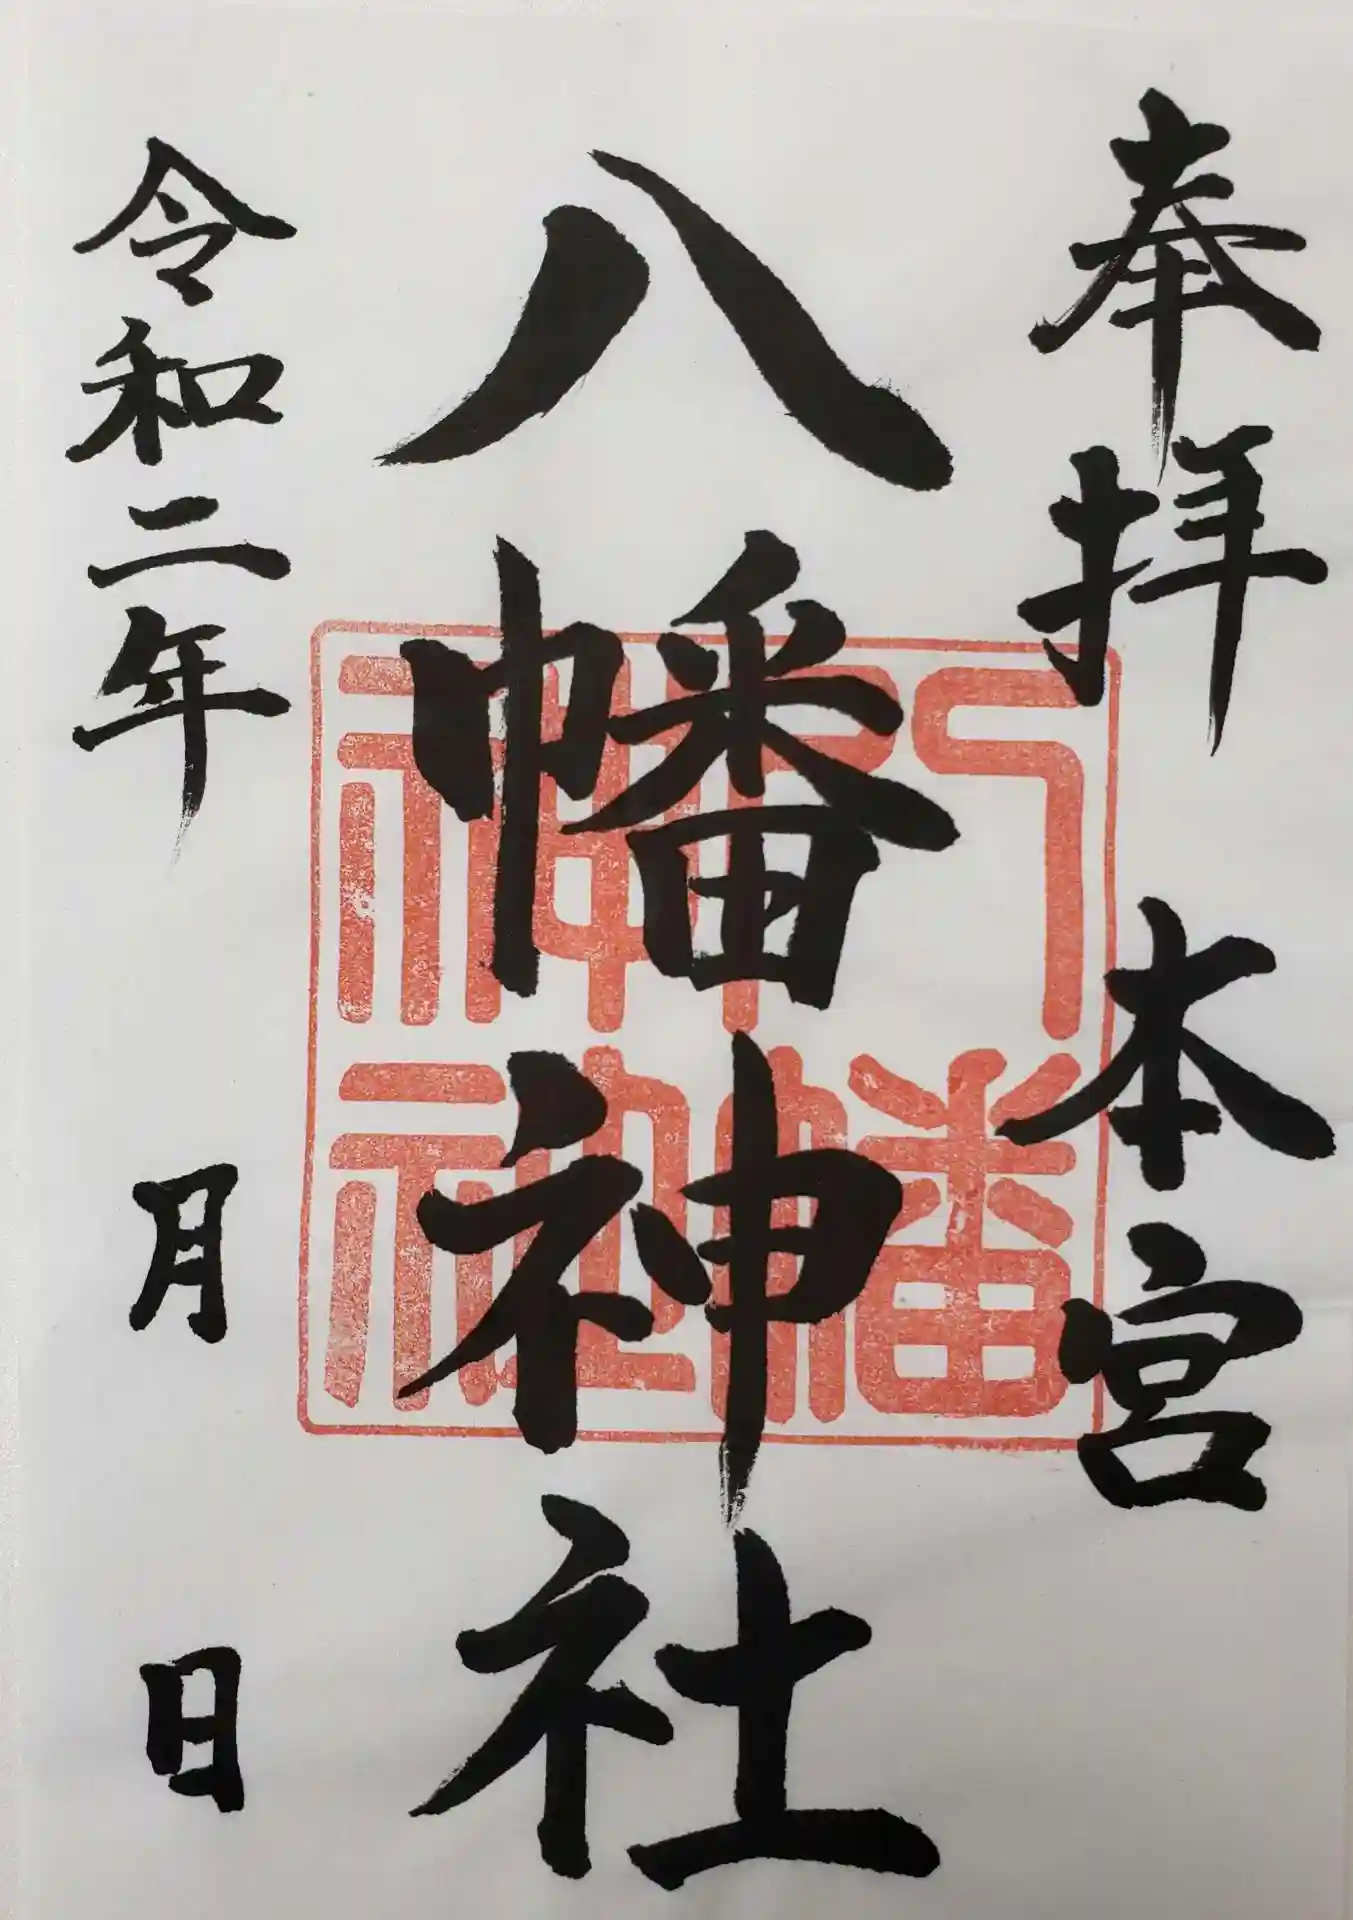 奉拝 本宮
八幡神社
八幡神社
令和二年 月 日